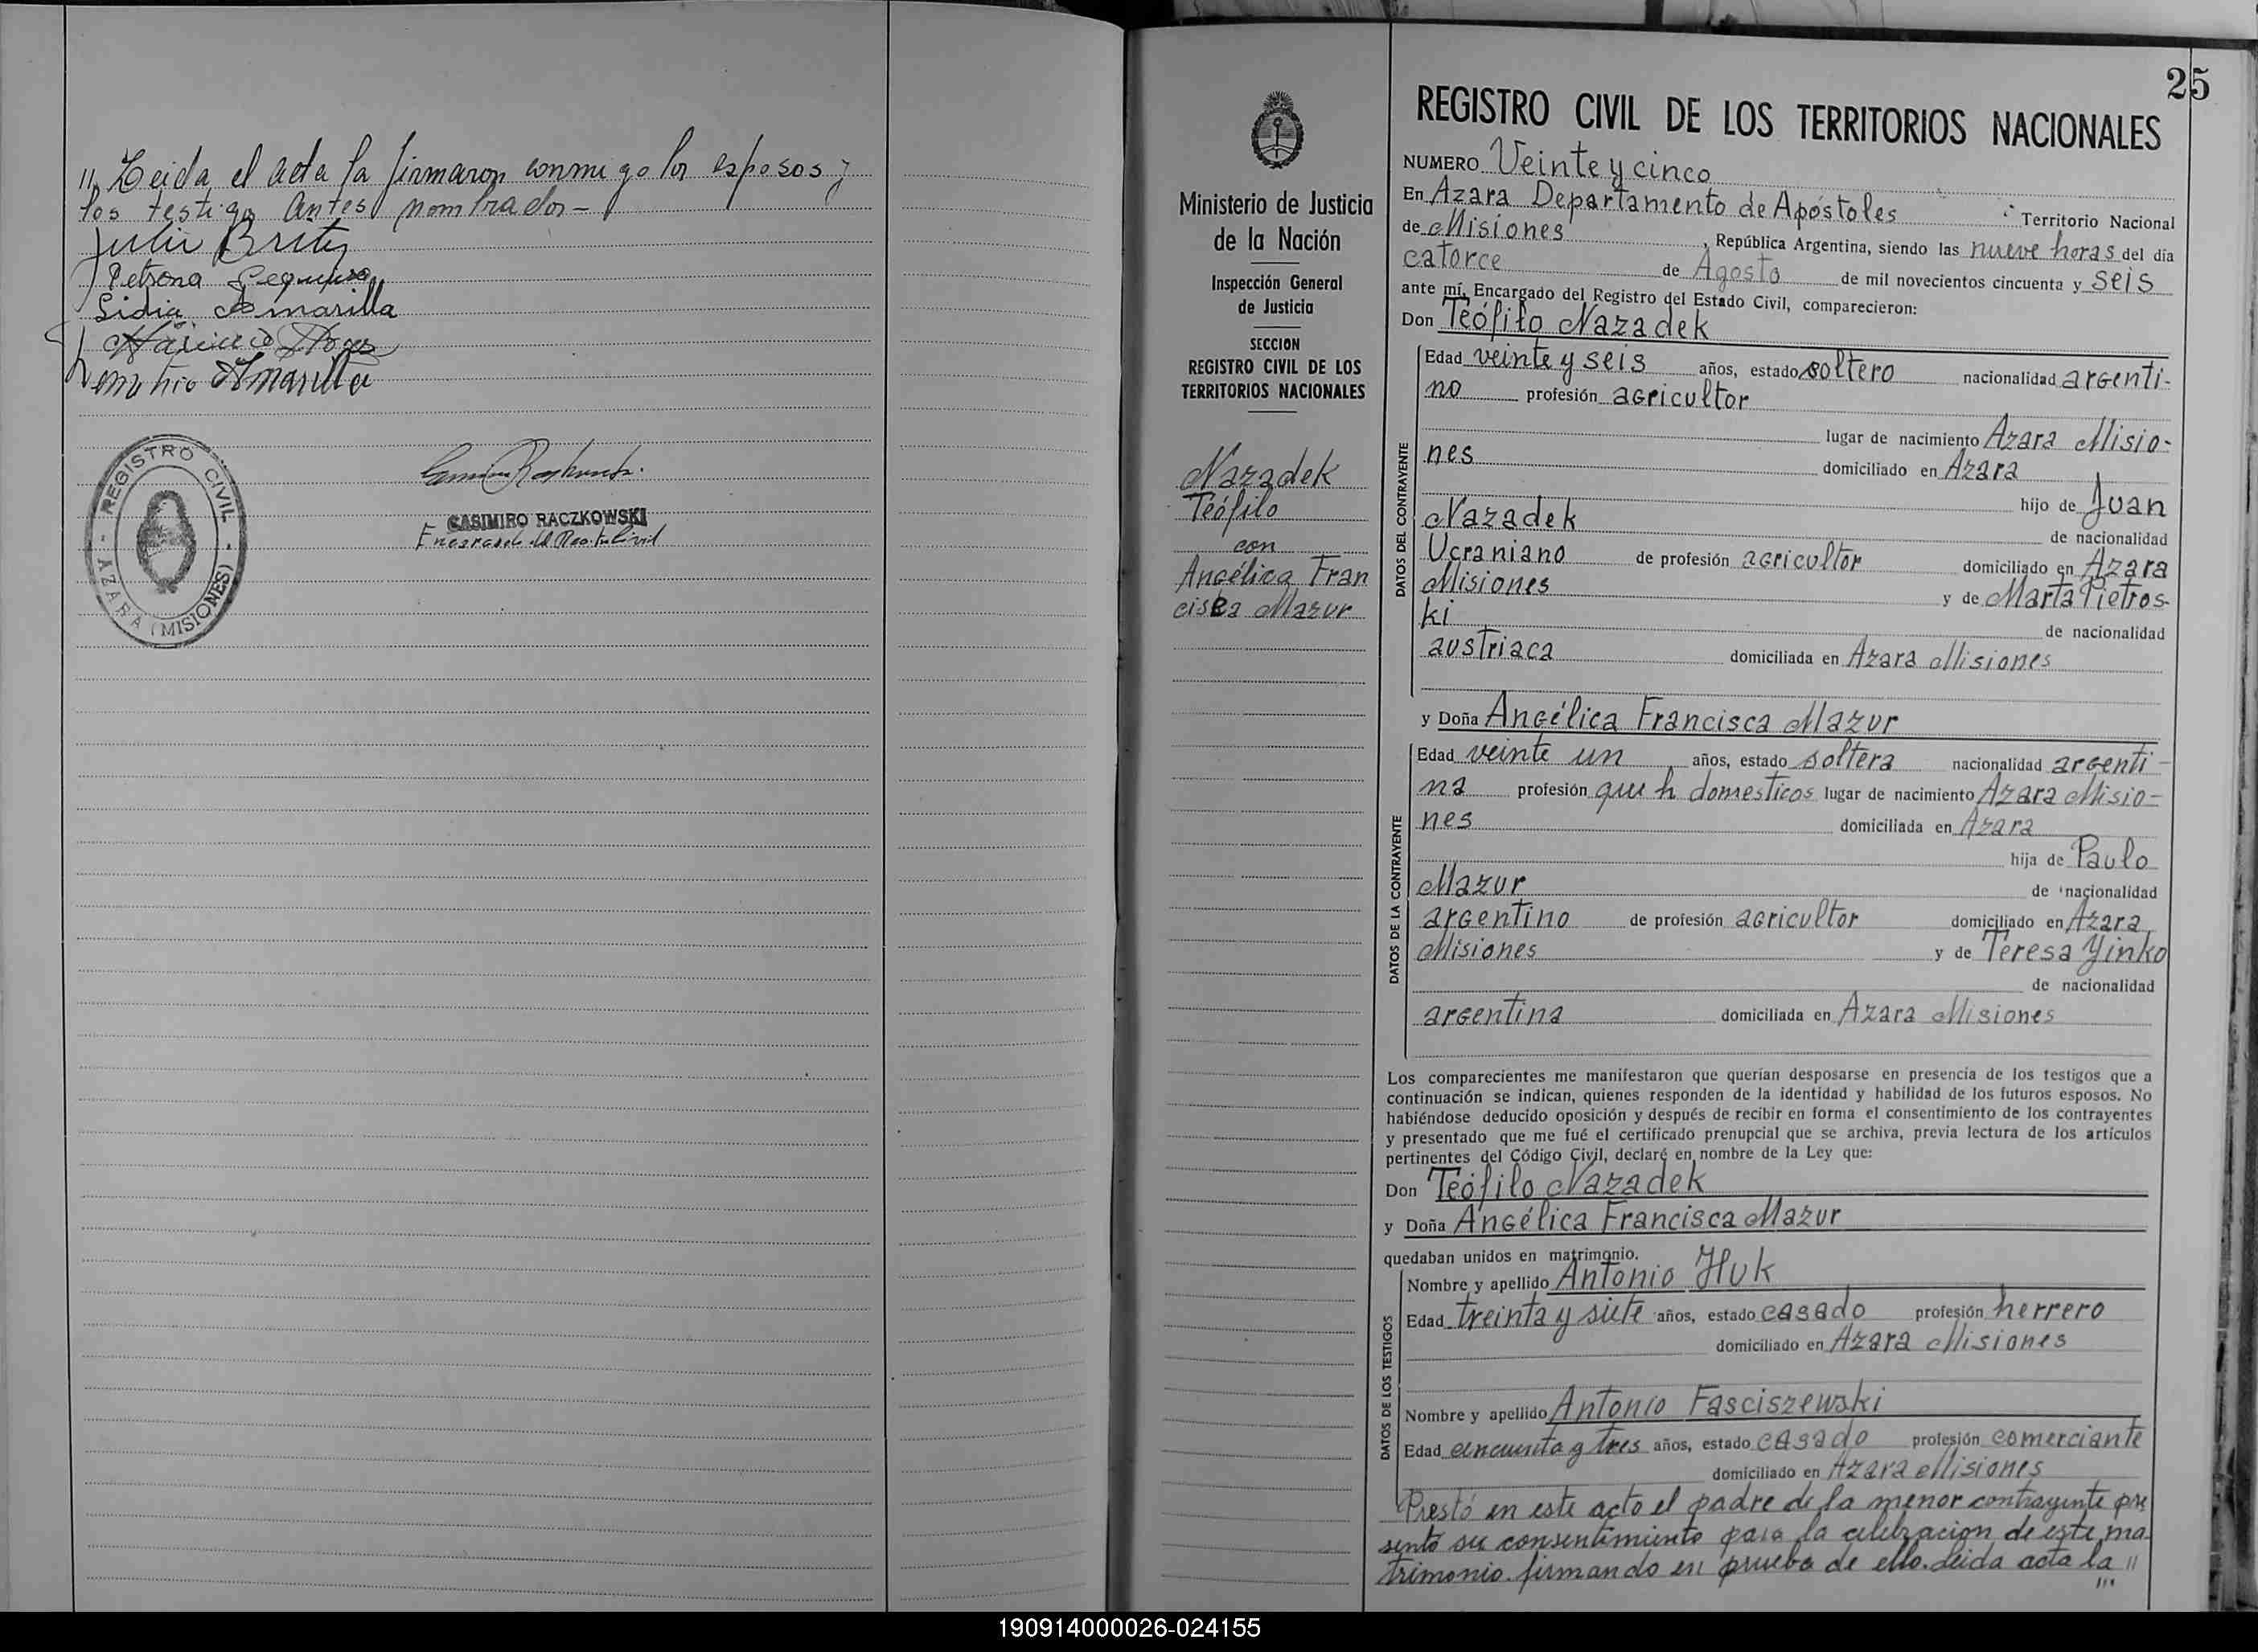 " Leida el acta la firmaron conmigo los esposos y
los testigos antes nombrados -
Julio Britez
Petrona
Lidia Amarilla
Demetrio Amarilla
REGISTRO CIVIL - AZARA (MISIONES) -
CASIMIRO RACZKOWSKI
Encargado del Reg. Civil
Ministerio de Justicia
de la Nación
Inspección General
de Justicia
SECCION
REGISTRO CIVIL DE LOS
TERRITORIOS NACIONALES
Nazadek
Teófilo
con
Angélica Fran
cisca Mazur
25
REGISTRO CIVIL DE LOS TERRITORIOS NACIONALES
NUMERO Veinte y cinco
En Azara Departamento de Apóstoles Territorio Nacional
de Misiones, República Argentina, siendo las nueve horas del día
catorce de Agosto de mil novecientos cincuenta y seis
ante mí, Encargado del Registro del Estado Civil, comparecieron:
Don Teófilo Nazadek
DATOS DEL CONTRAYENTE
Edad veinte y seis años, estado soltero nacionalidad argenti-
no profesión agricultor
lugar de nacimiento Azara Misio-
nes domiciliado en Azara
hijo de Juan
Nazadek de nacionalidad
Ucraniano de profesión agricultor domiciliado en Azara
Misiones y de Marta Pietros-
ki de nacionalidad
austriaca domiciliada en Azara Misiones
y Doña Angélica Francisca Mazur
DATOS DE LA CONTRAYENTE
Edad veinte un años, estado soltera nacionalidad argenti-
na profesión queh domesticos lugar de nacimiento Azara Misio-
nes domiciliada en Azara
hija de Paulo
Mazur de nacionalidad
argentino de profesión agricultor domiciliado en Azara
Misiones y de Teresa Yinko
de nacionalidad
argentina domiciliada en Azara Misiones
Los comparecientes me manifestaron que querían desposarse en presencia de los testigos que a
continuación se indican, quienes responden de la identidad y habilidad de los futuros esposos. No
habiéndose deducido oposición y después de recibir en forma el consentimiento de los contrayentes
y presentado que me fué el certificado prenupcial que se archiva, previa lectura de los artículos
pertinentes del Código Civil, declaré en nombre de la Ley que:
Don Teófilo Nazadek
y Doña Angélica Francisca Mazur
quedaban unidos en matrimonio.
DATOS DE LOS TESTIGOS
Nombre y apellido Antonio Huk
Edad treinta y siete años, estado casado profesión herrero
domiciliado en Azara Misiones
Nombre y apellido Antonio Fasciszewski
Edad cincuenta y tres años, estado casado profesión comerciante
domiciliado en Azara Misiones
Prestó en este acto el padre de la menor contrayente pre
sento su consentimiento para la celebracion de este ma-
trimonio firmando en prueba de ello. Leida acta la "
190914000026-024155